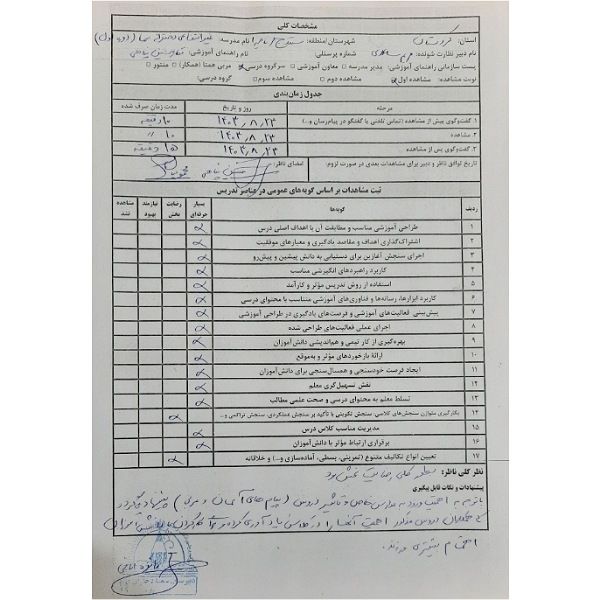 مشخصات کلی
استان: کردستان شهرستان/منطقه: سنندج نام مدرسه: غیرانتفاعی دخترانه (دوره اول)
نام دبیر نظارت شونده: مریم شماره پرسنلی: نام راهنمای آموزشی:
پست سازمانی راهنمای آموزشی: مدیر مدرسه □ معاون آموزشی □ سرگروه درسی مربی همتا (همکار) □ منتور □
نوبت مشاهده: مشاهده اول مشاهده دوم □ مشاهده سوم □ گروه درسی:
جدول زمان‌بندی
مرحله روز و تاریخ مدت زمان صرف شده
۱. گفت‌وگوی پیش از مشاهده (تماس تلفنی یا گفتگو در پیام‌رسان و...) ۱۴۰۳٫۸٫۲۳ ۱۰ دقیقه
۲. مشاهده ۱۴۰۳٫۸٫۲۳ ۱۰
۳. گفت‌وگوی پس از مشاهده ۱۴۰۳٫۸٫۲۳ ۱۵ دقیقه
تاریخ توافق ناظر و دبیر برای مشاهدات بعدی در صورت لزوم: امضای ناظر:
ثبت مشاهدات بر اساس گویه‌های عمومی در عناصر تدریس
ردیف گویه‌ها بسیار حرفه‌ای رضایت بخش نیازمند بهبود مشاهده نشد
۱ طراحی آموزشی مناسب و مطابقت آن با اهداف اصلی درس
۲ اشتراک‌گذاری اهداف و مقاصد یادگیری و معیارهای موفقیت
۳ اجرای سنجش آغازین برای دستیابی به دانش پیشین و پیش‌رو
۴ کاربرد راهبردهای انگیزشی مناسب
۵ استفاده از روش تدریس مؤثر و کارآمد
۶ کاربرد ابزارها، رسانه‌ها و فناوری‌های آموزشی متناسب با محتوای درسی
۷ پیش‌بینی فعالیت‌های آموزشی و فرصت‌های یادگیری در طراحی آموزشی
۸ اجرای عملی فعالیت‌های طراحی شده
۹ بهره‌گیری از کار تیمی و هم‌اندیشی دانش‌آموزان
۱۰ ارائهٔ بازخوردهای مؤثر و به‌موقع
۱۱ ایجاد فرصت خودسنجی و همسال‌سنجی برای دانش‌آموزان
۱۲ نقش تسهیل‌گری معلم
۱۳ تسلط معلم به محتوای درسی و صحت علمی مطالب
۱۴ بکارگیری متوازن سنجش‌های کلاسی، سنجش تکوینی با تأکید بر سنجش عملکردی، سنجش تراکمی و...
۱۵ مدیریت مناسب کلاس درس
۱۶ برقراری ارتباط مؤثر با دانش‌آموزان
۱۷ تعیین انواع تکالیف متنوع (تمرینی، بسطی، آماده‌سازی و...) و خلاقانه
نظر کلی ناظر: بطور کلی رضایت بخش بود
پیشنهادات و نکات قابل پیگیری
با توجه به اهمیت دروس (پیام های آسمان و عربی) پیشنهاد میگردد
دروس مذکور اهمیت آنها را در کلاس یادآوری کرده
اهتمام بیشتری ورزند.